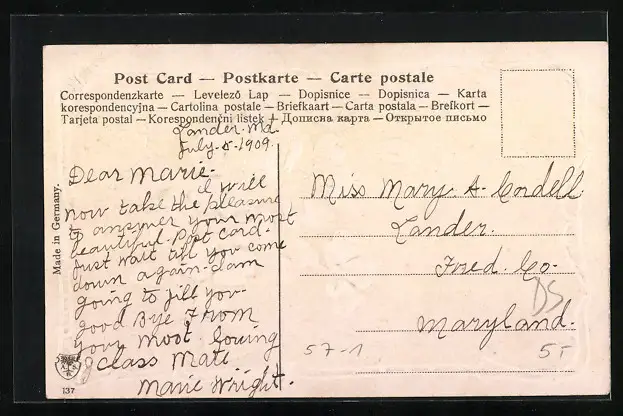 Post Card — Postkarte — Carte postale
Correspondenzkarte — Levelező Lap — Dopisnice — Dopisnica — Karta
korespondencyjna — Cartolina postale — Briefkaart — Carta postala — Brefkort —
Tarjeta postal — Korespondenčni listek — Дописна карта — Открытое письмо
Lander. Md.
July. 5. 1909.
Dear Marie.
I will
now take the pleasure
to answer your most
beautiful. Post card.
Just wait till you come
down again. I am
going to fill you.
good Bye From
your most loving
class mate
Marie Wright.
Miss Mary. A. Cordell.
Lander.
Fred. Co.
Maryland.
DS
57-1
5T
Made in Germany.
137